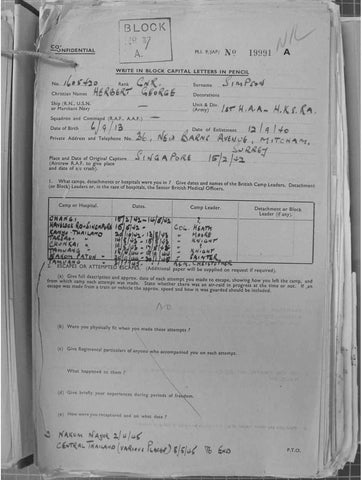 BLOCK
A.
CONFIDENTIAL
M.I. 9/JAP/ No 19991 A
WRITE IN BLOCK CAPITAL LETTERS IN PENCIL
No. 1605420 Rank GNR. Surname SIMPSON
Christian Names HERBERT GEORGE Decorations
Ship (R.N., U.S.N. or Merchant Navy) — Unit & Div. (Army) 1ST H.A.A. H.K.S.R.A.
Squadron and Command (R.A.F., A.A.F.) —
Date of Birth 6/9/13 Date of Enlistment 12/9/40
Private Address 36, NEW BARNS AVENUE, MITCHAM,
SURREY
Place and Date of Original Capture SINGAPORE 15/2/42
(Airmen R.A.F. to give place and date of a/c crash).
1. What camps, detachments or hospitals were you in? Give dates and names of the British Camp Leaders. Detachment (or Block) Leaders or, in the case of hospitals, the Senior British Medical Officers.
Camp or Hospital. Dates. Camp Leader. Detachment or Block Leader (if any).
CHANGI ?
HAVELOCK RD SINGAPORE COL. HEATH
THAILAND MOORE
TARSAO
CHUNKAI KNIGHT
TAMUANG KNIGHT
NAKOM PATON PAINTER
TAMUANG
2. ESCAPES OR ATTEMPTED ESCAPES. (Additional paper will be supplied on request if required).
(a) Give full description and approx. date of each attempt you made to escape, showing how you left the camp, and from which camp each attempt was made. State whether there was an air-raid in progress at the time or not. If an escape was made from a train or vehicle the approx. speed and how it was guarded should be included.
NO
(b) Were you physically fit when you made these attempts?
(c) Give Regimental particulars of anyone who accompanied you on each attempt.
What happened to them?
(d) Give briefly your experiences during periods of freedom.
(e) How were you recaptured and on what date?
NAKOM NAYOK
CENTRAL THAILAND (VARIOUS PLACES) TO END
P.T.O.